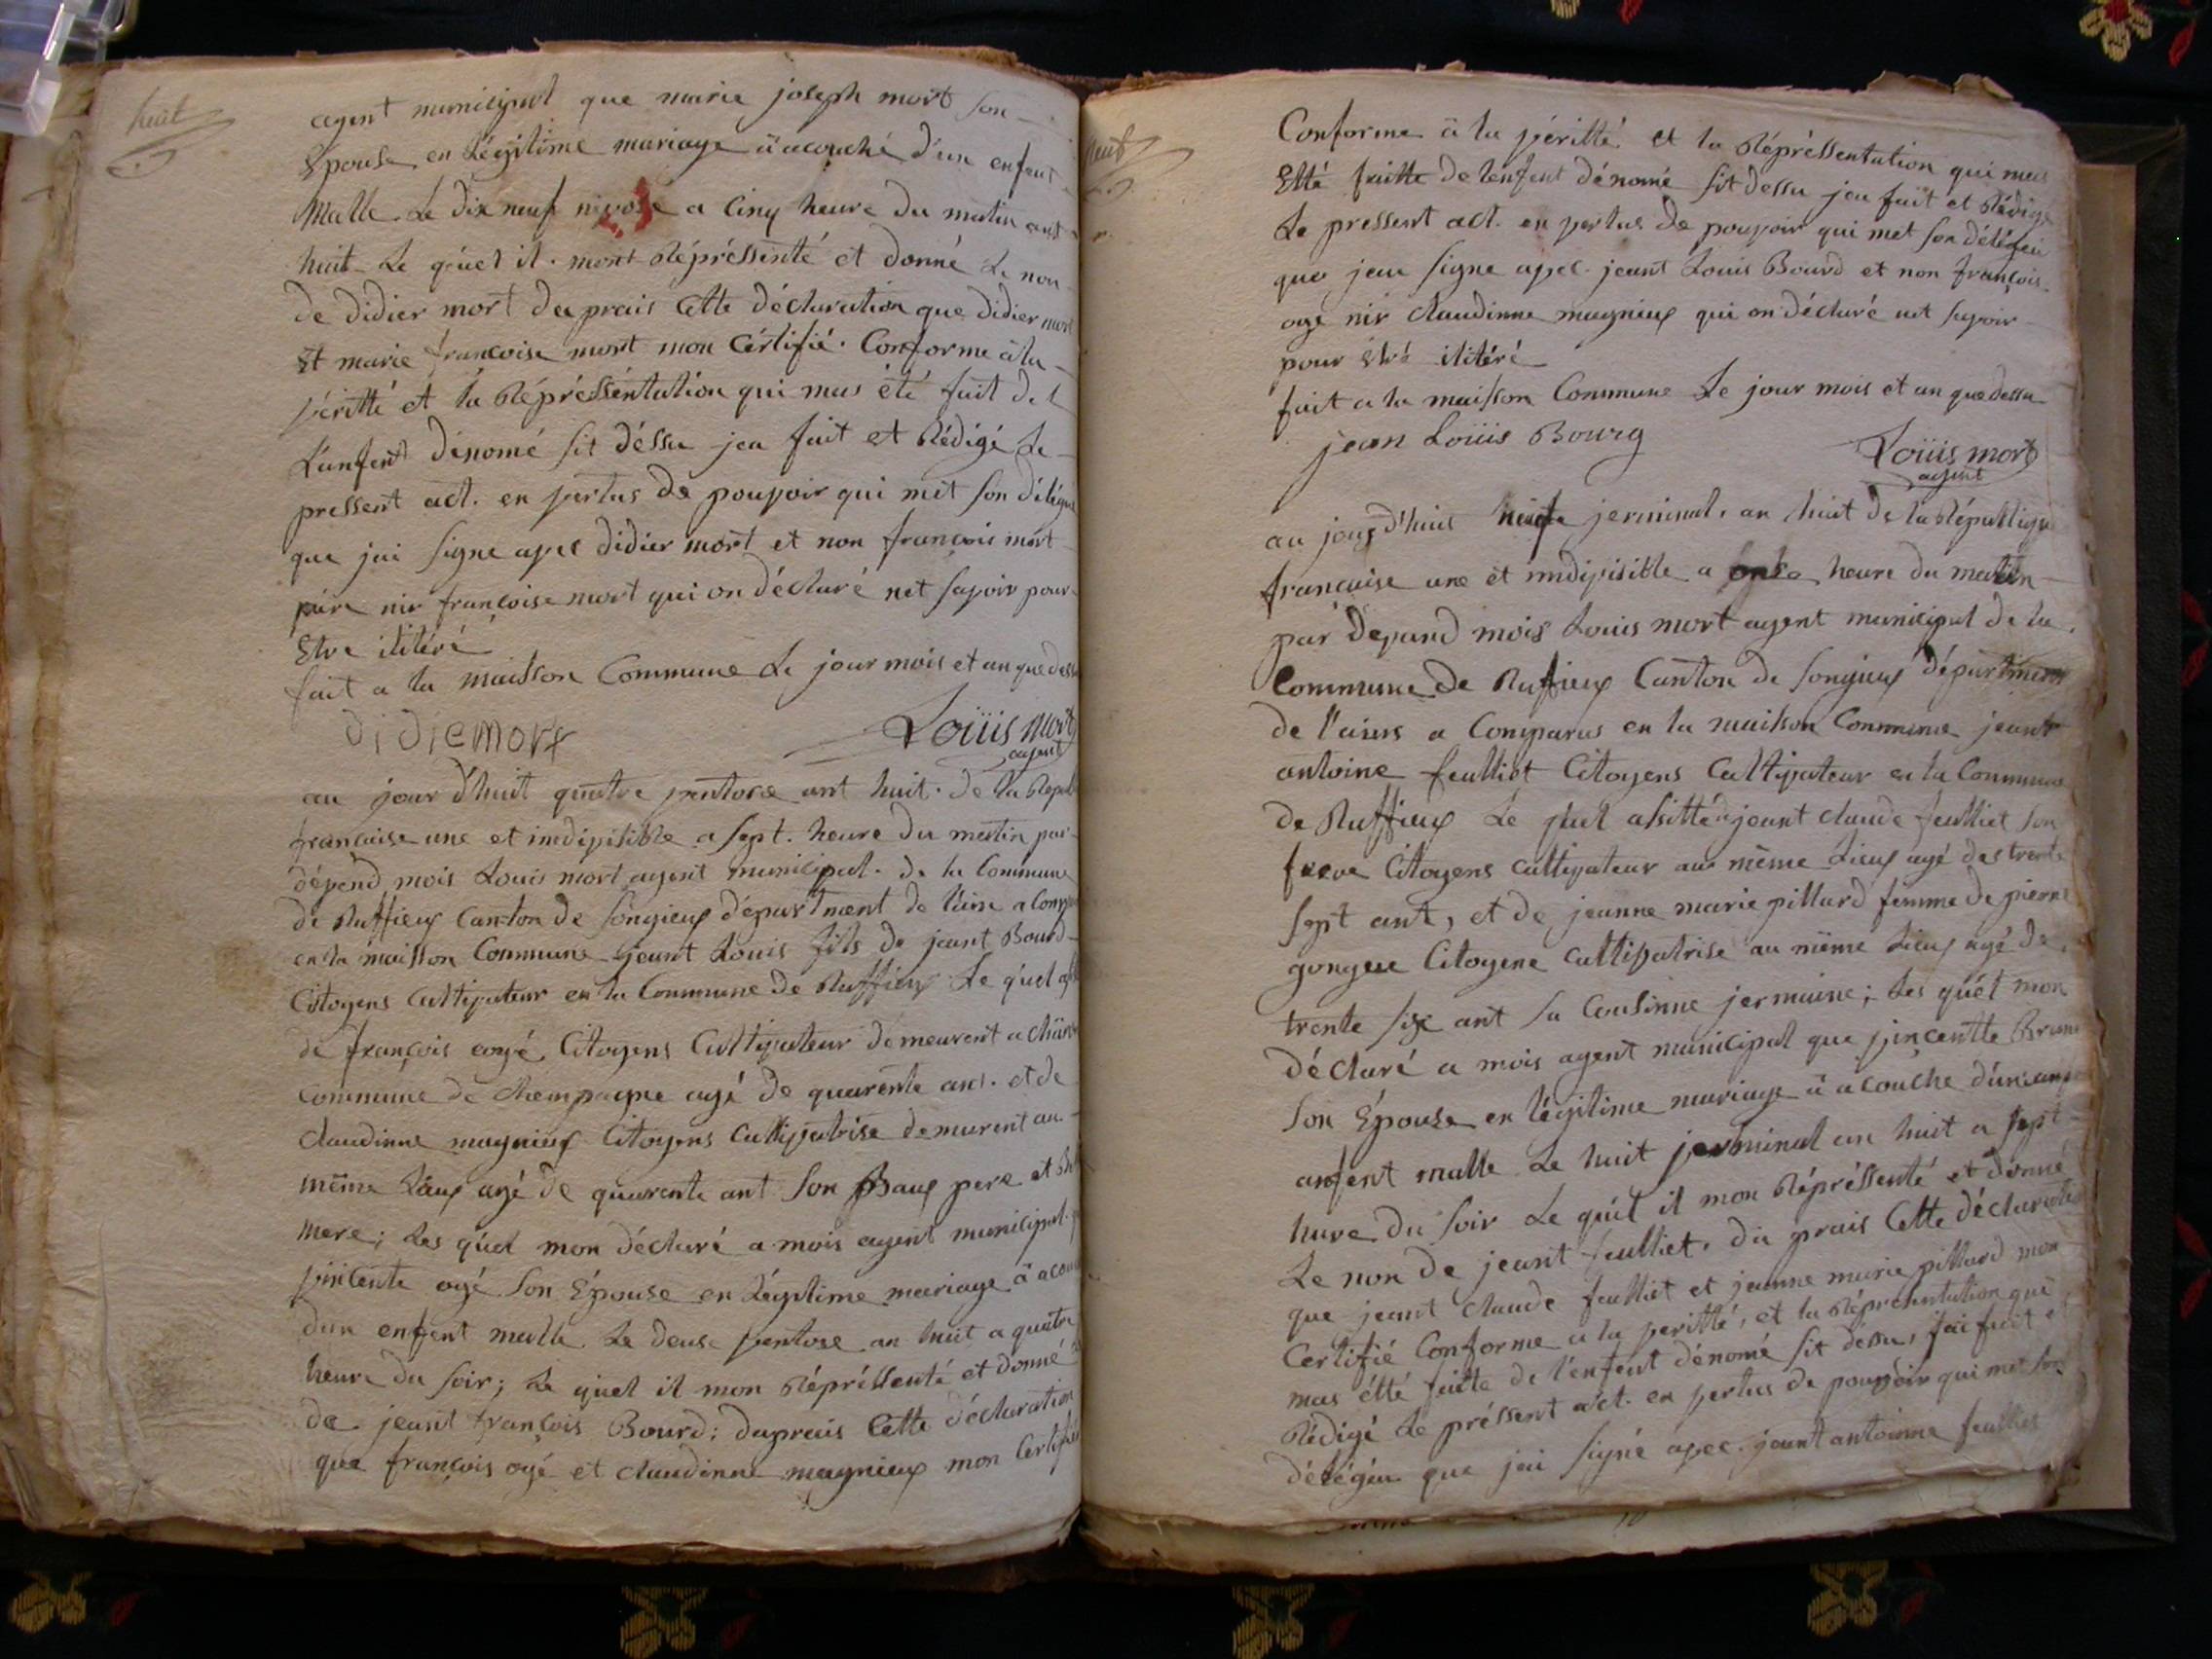 huit
agent municipal que marie joseph mort son
Epouse en Légitime mariage à acouché d'un enfent
Malle. Le dix neuf nivose a Cinq heure du matin ant
huit Le quel il. mont Répréssenté et donné Le non
de didier mort du prais Cette déclaration que didier mort
Et marie francoise mort mon Cértifié. Conforme à la
véritté et la Répréssentation qui mas été fait de
L'anfent dénomé sit déssu jea fait et Rédigé Le
pressent act. en vertus de pouvoir qui met son délégue
que jai signe avec didier mort et non francois mort
pére nir françoise mort qui on déclaré net savoir pour
Etre ilitéré
fait a la maisson Commune Le jour mois et an que dessu
didiemort
Loüis mort
agent
au jour d'huit quattre ventose ant huit. de la Repub
francaise une et indivisible a sept. heure du mattin par
dépend mois Louis mort agent municipal. de la Commune
de Ruffieux Canton de songieux départment de l'ain a Compa
en la maisson Commune jeant Louis fils de jeant Bourd
Citoyens Cultivateur en la Commune de Ruffieux Le quel
de françois eogé Citoyens Cultivateur demeurent a
Commune de Champagne agé de quarente ant. et de
claudinne magnieux Citoyens Cultivatrise demurent au
même Lieux agé de quarente ant son Baux pere et
mere; Les quel mon déclaré a mois agent municipal.
vincente ogé son Epouse en Légitime mariage à acou
dun enfent malle Le deuse ventose an huit a quatre
heure du soir; Le quel il mon Répréssenté et donné
de jeant françois Bourd: duprais Cette déclaration
que françois ogé et claudinne magnieux mon Certifié
neuf
Conforme à la véritté et la Répréssentation qui mas
Etté faitte de lenfent dénomé sit dessu jea fait et Rédigé
Le pressent act. en vertus de pouvoir qui met son délégeu
que jeai signe avec. jeant Louis Bourd et non françois
ogé nir claudinne magnieux qui on déclaré net savoir
pour Etré ilitéré
fait a la maisson Commune Le jour mois et an que dessu
jean Loüis Bourg
Loüis mort
agent
au jourd'huit jerminal. an huit de la République
francaise une et indivisible a heure du mattin
par dépand mois Louis mort agent municipal de la
Commune de Ruffieux Canton de songieux départment
de l'ains a Comparus en la maisson Commune jeant
antoine feulliet Citoyens Cultivateur en la Commune
de Ruffieux Le quel assitté jeant claude feulliet son
frere Citoyens Cultivateur au même Lieux agé des trente
sept ant, et de jeanne marie pillard femme de pierre
gongeu Citoyene Cultivatrise au même Lieux agé de
trente six ant sa Cousinne jermaine; Les quél mon
déclaré a mois agent municipal que vincentte
son Epouse en légitime mariage à acouche
anfent malle Le huit jerminal an huit a sept
hure du soir Le quél il mon Répréssenté et donné
Le non de jeant feulliet. du prais Cette déclaration
que jeant claude feulliet et jeanne marie pillard mon
Certifié Conforme a la veritté, et la Répresentation qui
mas étté faitte de l'enfent dénomé sit dessu, jai fait et
Rédigé Le préssent act. en vertus de pouvoir qui met son
délégeu que jai signé avec. jeant antoinne feulliet